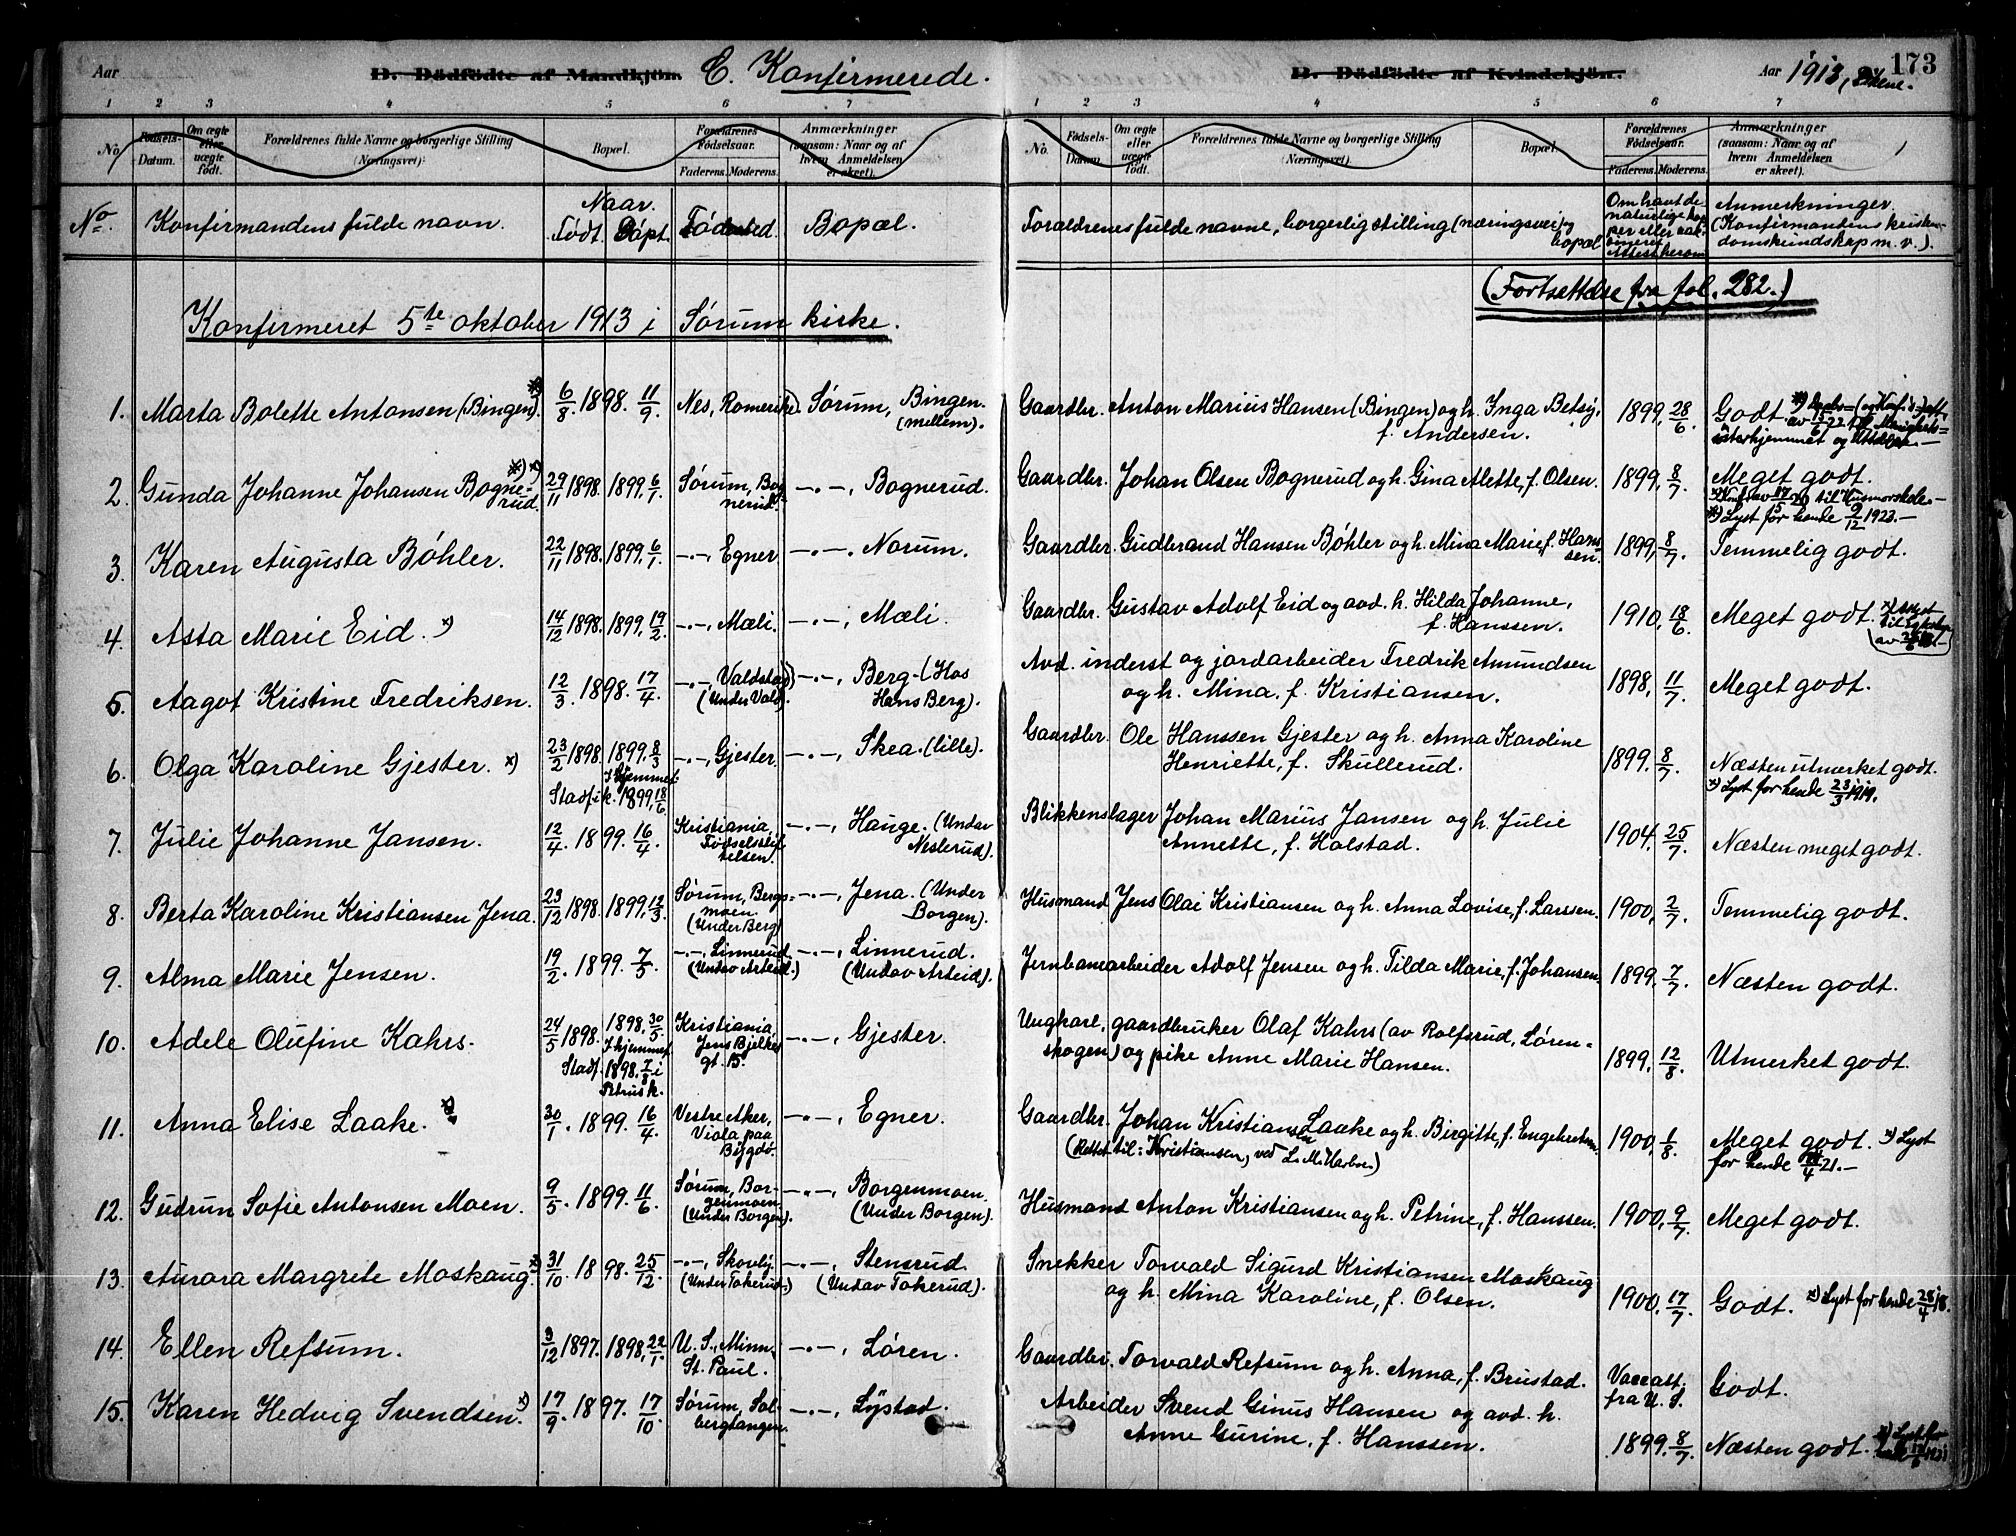 Aar D. Dödfödte af Mandkjön. C. Konfirmerede. D. Dödfödte af Kvindekjön. Aar 1913, 173
1 2 3 4 5 6 7 1 2 3 4 5 6 7
No. Fødsels-Datum. Om ægte eller uægte födt. Forældrenes fulde Navne og borgerlige Stilling (Næringsvei). Bopæl. Forældrenes Födselsaar. Faderens. Moderens. Anmærkninger (saasom: Naar og af hvem Anmeldelsen er skeet).
No. Födsels-Datum. Om ægte eller uægte födt. Forældrenes fulde Navne og borgerlige Stilling (Næringsvei). Bopæl. Forældrenes Födselsaar. Faderens. Moderens. Anmærkninger (saasom: Naar og af hvem Anmeldelsen er skeet).
No. Konfirmandens fulde navn. Naar. Født. Døpt. Fødested. Bopæl. Forældrenes fulde navne, borgerlig stilling (næringsvei) og bopæl Om havt de naturlige kopper eller vakcineret Attest herom Anmerkninger. (Konfirmandens kristendomskundskap m. v.).
(Fortsettelse fra fol. 282.)
Konfirmeret 5te oktober 1913 i Sørum kirke.
1. Marta Bolette Antonsen (Bingen). 6/8. 1898. 11/9. Nes, Romerike Sørum, Bingen. (mellem). Gaardbr. Anton Marius Hansen (Bingen) og h. Inga Betsy, f. Andersen. 1899, 28/6. Godt
2. Gunda Johanne Johansen Bognerud. 29/11 1898. 1899, 6/1. Sørum, Bognerud. -"-, Bognerud. Gaardbr. Johan Olsen Bognerud og h. Gina Alette, f. Olsen. 1899, 8/7. Meget godt. til Husmorskole.- x) Lyst for hende 9/12 1923.-
3. Karen Augusta Bøhler. 22/11 1898. 1899, 6/1. -"-, Egner -"-, Norum. Gaardbr. Gudbrand Hansen Bøhler og h. Mina Marie, f. Hanssen. 1899, 8/7. Temmelig godt.
4. Asta Marie Eid. x) 14/12 1898. 1899, 19/2. -"-, Mæli. -"-, Mæli. Gaardbr. Gustav Adolf Eid og avd. h. Hilda Johanne, f. Hanssen. 1910, 18/6. Meget godt.
5. Aagot Kristine Fredriksen. 12/3. 1898. 17/4. -"-, Valdstad (Under Vald). -"-, Berg (Hos Hans Berg). Avd. inderst og jordarbeider Fredrik Amundsen og h. Mina, f. Kristiansen. 1898, 11/7. Meget godt.
6. Olga Karoline Gjester. x) 23/2 1898. 1899. 8/3 I hjemmet. Stadf. i k. 1899, 18/6 -"-, Gjester. -"-, Skea. (lille). Gaardbr. Ole Hanssen Gjester og h. Anna Karoline Henriette, f. Skullerud. 1899. 8/7. Næsten utmerket godt. x) Lyst for hende 23/3 1919.
7. Julie Johanne Jansen. 12/4. 1899. 16/4. Kristiania, Fødselsstiftelsen. -"-, Hauge. (Undav Neslerud). Blikkenslager Johan Marius Jansen og h. Julie Annette, f. Holstad. 1904. 25/7. Næsten meget godt.
8. Berta Karoline Kristiansen Jena. 23/12 1898. 1899, 12/3. Sørum, Bergsmoen. (Under Berg) -"-, Jena. (Under Borgen). Husmand Jens Olai Kristiansen og h. Anna Lovise, f. Larssen. 1900, 2/7. Temmelig godt.
9. Alma Marie Jensen. 19/2. 1899. 7/5. -"-, Linnerud (Undav Arteid.) -"-, Linnerud. (Undav Arteid). Jernbanearbeider Adolf Jensen og h. Tilda Marie, f. Johansen. 1899. 7/7. Næsten godt.
10. Adele Olufine Kahrs. 24/5 1898. 1898, 30/5. I hjemmet. Stadf. 1898. 7/8 i Petrus k. Kristiania, Jens Bjelkes gt. 15. -"-, Gjester. Ungkarl, gaardbruker Olaf Kahrs (av Rolfsrud, Lørenskogen) og pike Anne Marie Hansen. 1899, 12/8. Utmerket godt.
11. Anna Elise Laake. x) 30/1. 1899. 16/4. Vestre Aker, Viola paa Bygdø. -"-, Egner. Gaardbr. Johan Kristiansen Laake og h. Birgitte, f. Engebretsen. (Rettet til: Kristiansen, ved L. M. Harboe.) 1900, 1/8. Meget godt. x) Lyst for hende 24/4 21.-
12. Gudrun Sofie Antonsen Moen. 9/5. 1899. 11/6. Sørum, Borgenmoen. (Under Borgen). -"-, Borgenmoen. (Under Borgen). Husmand Anton Kristiansen og h. Petrine, f. Hanssen. 1900, 9/7. Meget godt.
13. Aurora Margrete Moskaug. x) 31/10. 1898. 25/12. -"-, Skovly. (Under Tokerud.) -"-, Stensrud (Undav Tokerud). Snekker Torvald Sigurd Kristiansen Moskaug og h. Mina Karoline, f. Olsen. 1900. 17/7. Godt. x) Lyst for hende 28/4 18.
14. Ellen Refsum. 3/12 1897. 1898, 22/1. U. S., Minn. St. Paul. -"-, Løren. Gaardbr. Torvald Refsum og h. Anna, f. Brustad. Vacc.att. fra U. S. Godt.
15. Karen Hedvig Svendsen. x) 17/9. 1897. 17/10. Sørum, Solbergtangen. -"-, Lystad. Arbeider Svend Ginus Hansen og avd. h. Anne Gurine, f. Hanssen. 1899. 8/7. Næsten godt.